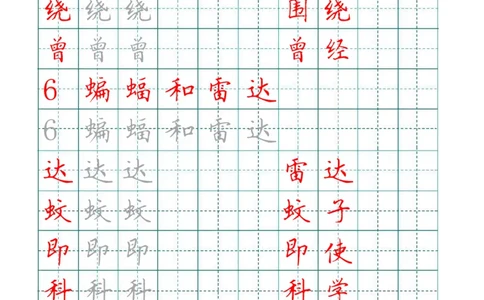 绕绕绕 围绕
曾曾曾 曾经
6 蝙蝠和雷达
6 蝙蝠和雷达
达达达 雷达
蚊蚊蚊 蚊子
即即即 即使
科科科 科学